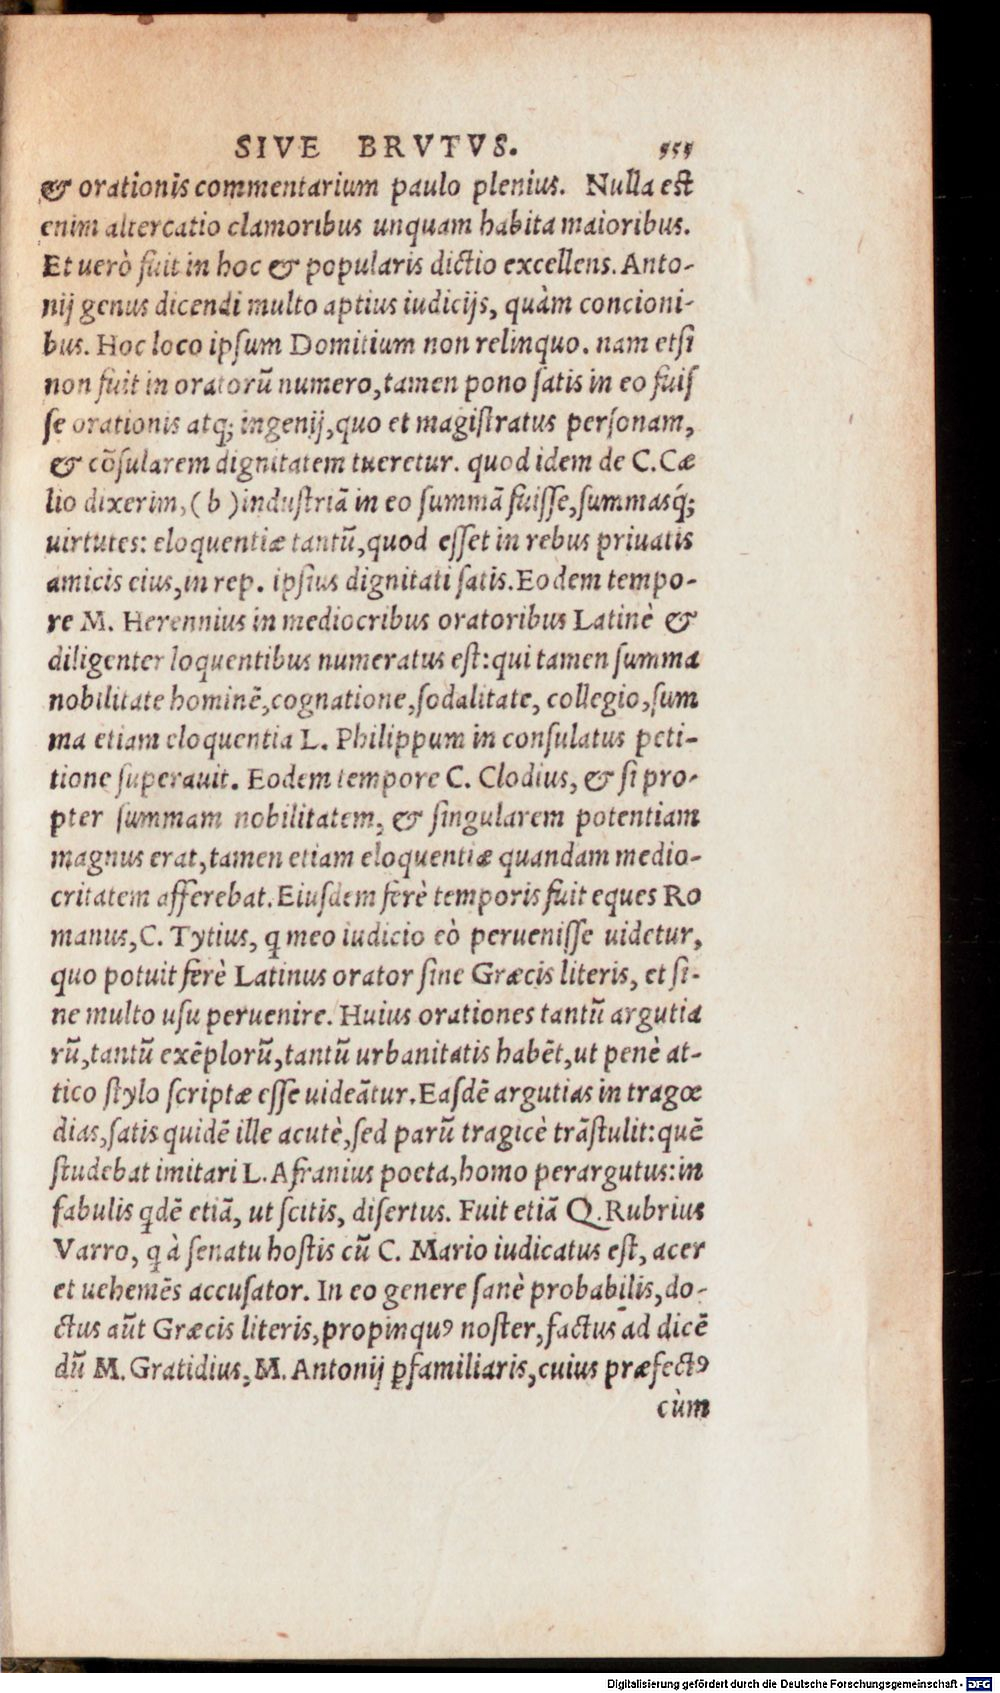 SIVE BRVTVS. 555
& orationis commentarium paulo plenius. Nulla est
enim altercatio clamoribus unquam habita maioribus.
Et uerò fuit in hoc & popularis dictio excellens. Anto-
nij genus dicendi multo aptius iudicijs, quàm concioni-
bus. Hoc loco ipsum Domitium non relinquo. nam etsi
non fuit in oratorũ numero, tamen pono satis in eo fuiſ
ſe orationis atq; ingenij, quo et magiſtratus perſonam,
& cõſularem dignitatem tueretur. quod idem de C. Cæ
lio dixerim, (b) induſtriã in eo ſummã fuiſſe, ſummasq́;
uirtutes: eloquentiæ tantũ, quod eſſet in rebus priuatis
amicis eius, in rep. ipſius dignitati ſatis. Eodem tempo-
re M. Herennius in mediocribus oratoribus Latinè &
diligenter loquentibus numeratus eſt: qui tamen ſumma
nobilitate hominẽ, cognatione, ſodalitate, collegio, ſum
ma etiam eloquentia L. Philippum in conſulatus peti-
tione ſuperauit. Eodem tempore C. Clodius, & ſi pro-
pter ſummam nobilitatem, & ſingularem potentiam
magnus erat, tamen etiam eloquentiæ quandam medio-
critatem afferebat. Eiuſdem ferè temporis fuit eques Ro
manus, C. Tytius, q̃ meo iudicio eò perueniſſe uidetur,
quo potuit ferè Latinus orator ſine Græcis literis, et ſi-
ne multo uſu peruenire. Huius orationes tantũ argutia
rũ, tantũ exẽplorũ, tantũ urbanitatis habẽt, ut penè at-
tico ſtylo ſcriptæ eſſe uideãtur. Eaſdẽ argutias in tragœ
dias, ſatis quidẽ ille acutè, ſed parũ tragicè trãſtulit: quẽ
ſtudebat imitari L. Afranius poeta, homo perargutus: in
fabulis q̃dẽ etiã, ut ſcitis, diſertus. Fuit etiã Q. Rubrius
Varro, q̃ à ſenatu hoſtis cũ C. Mario iudicatus eſt, acer
et uehemẽs accuſator. In eo genere ſanè probabilis, do-
ctus aũt Græcis literis, propinquꝰ noſter, factus ad dicẽ
dũ M. Gratidius, M. Antonij ꝑfamiliaris, cuius præfectꝰ
cùm
Digitalisierung gefördert durch die Deutsche Forschungsgemeinschaft - DFG